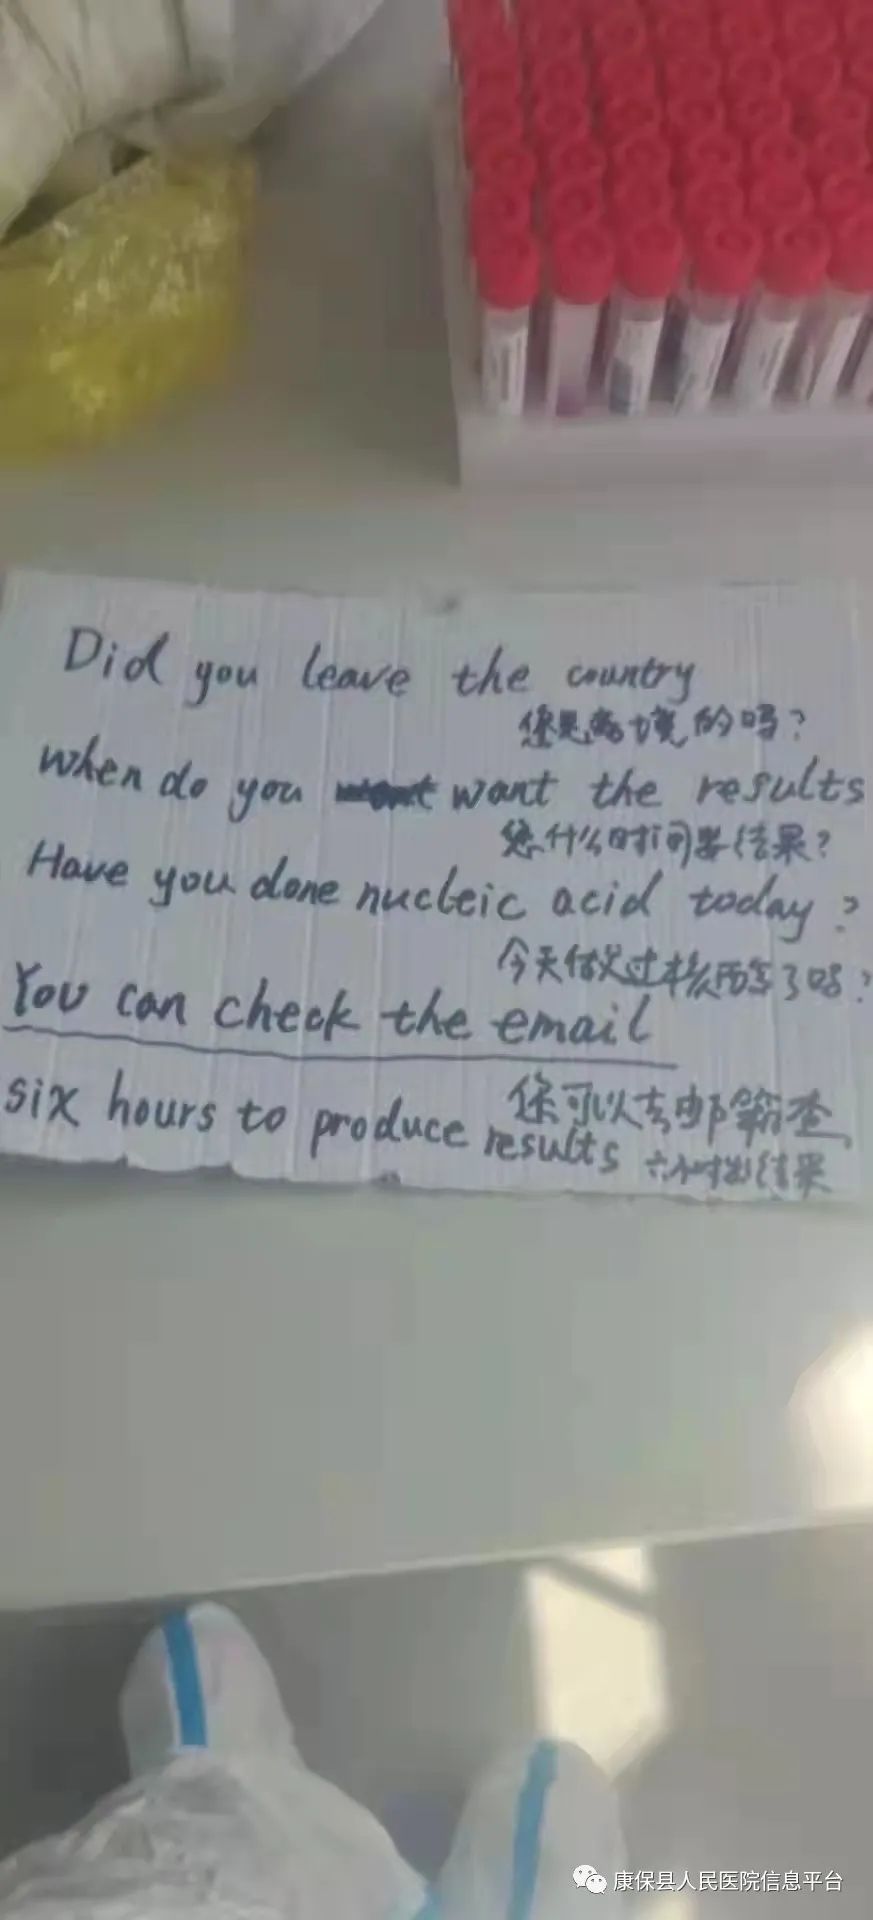 Did you leave the country
您是离境的吗?
when do you want the results
您什么时间要结果?
Have you done nucleic acid today?
今天做过核酸了吗?
You can check the email
您可以去邮箱查
six hours to produce results
六小时出结果
康保县人民医院信息平台